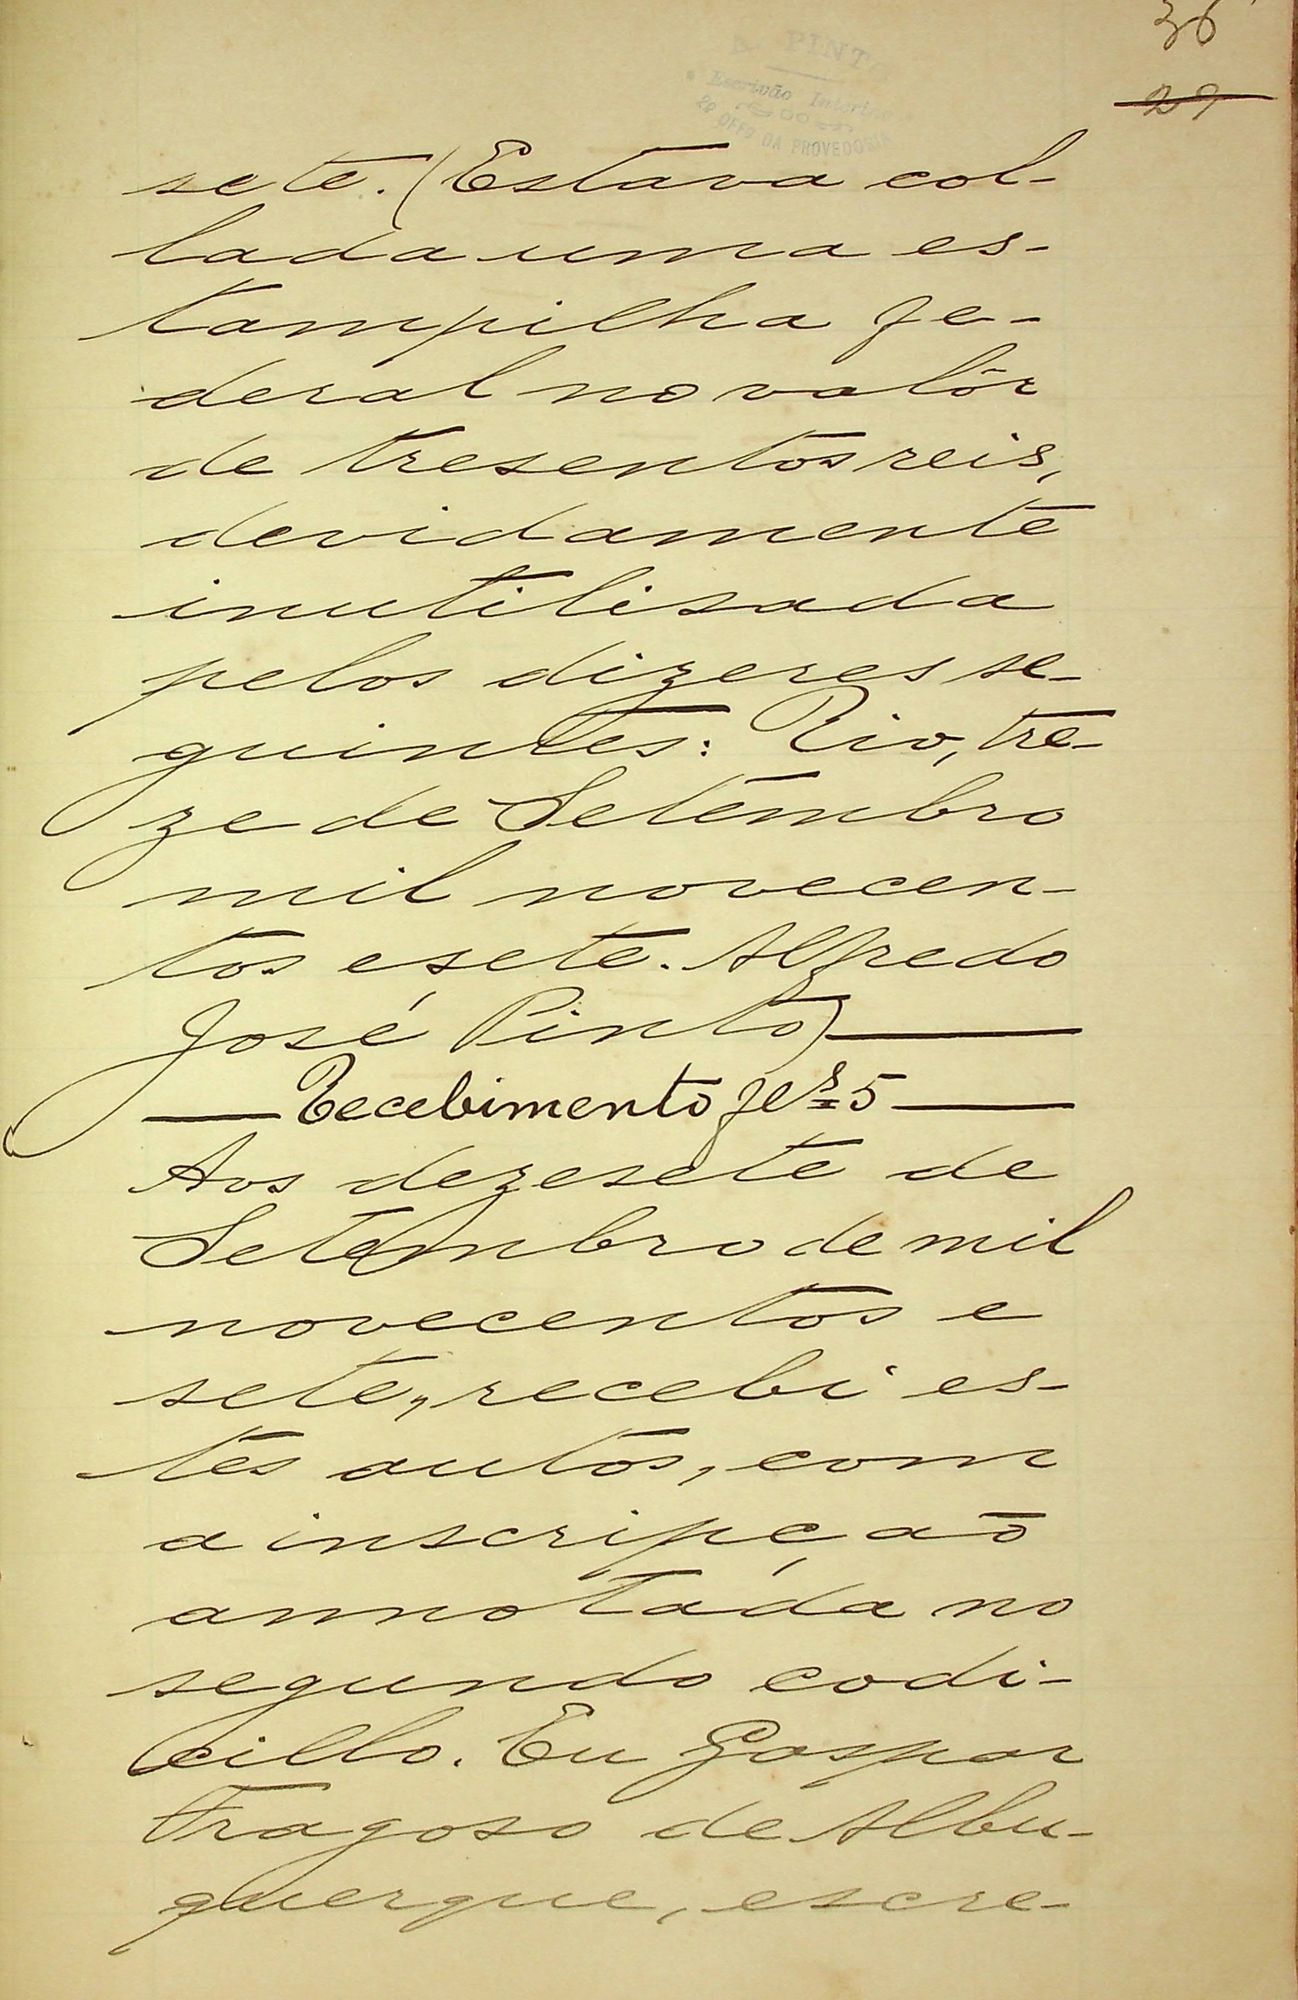 36
27
A PINTO
Escrivão Interino
2º OFFº DA PROVEDORIA
sete. (Estava col-
lada uma es-
tampilha fe-
deral no valôr
de tresentos reis,
devidamente
inutilisada
pelos dizeres se-
guintes: Rio, tre-
ze de Setembro
mil novecen-
tos e sete. Alfredo
José Pinto)
Recebimento fls 5
Aos dezesete de
Setembro de mil
novecentos e
sete, recebi es-
tes autos, com
a inscripção
annotada no
segundo codi-
cillo. Eu Gaspar
Fragoso de Albu-
querque, escre-